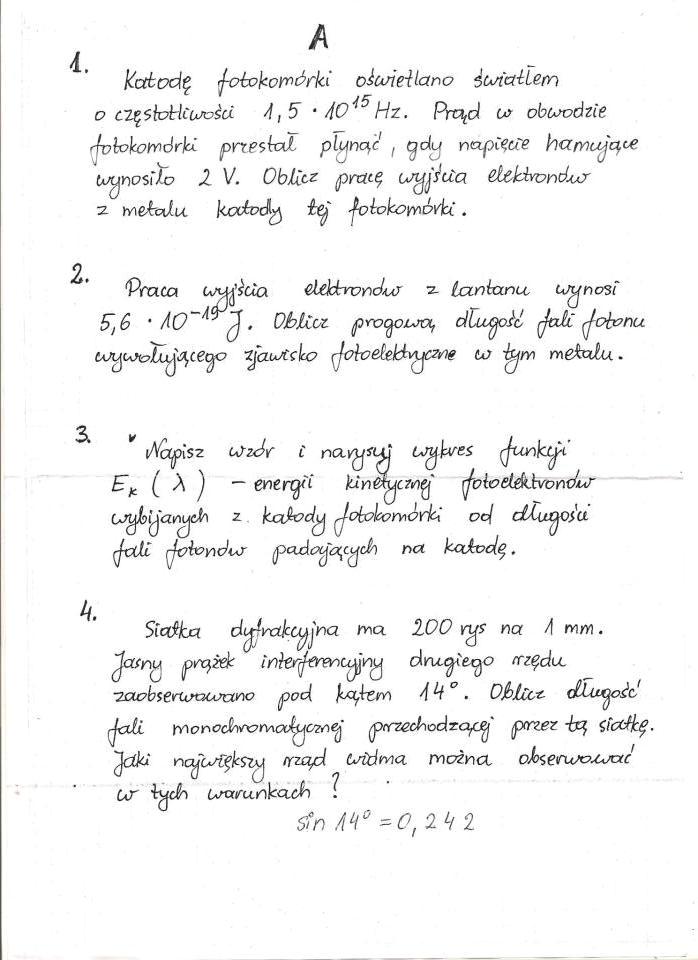 A
1.
Katodę fotokomórki oświetlano światłem
o częstotliwości 1,5 · 10¹⁵ Hz. Prąd w obwodzie
fotokomórki przestał płynąć, gdy napięcie hamujące
wynosiło 2 V. Oblicz pracę wyjścia elektronów
z metalu katody tej fotokomórki.
2.
Praca wyjścia elektronów z lantanu wynosi
5,6 · 10⁻¹⁹ J. Oblicz progową długość fali fotonu
wywołującego zjawisko fotoelektryczne w tym metalu.
3.
Napisz wzór i narysuj wykres funkcji
Eₖ (λ) – energii kinetycznej fotoelektronów
wybijanych z katody fotokomórki od długości
fali fotonów padających na katodę.
4.
Siatka dyfrakcyjna ma 200 rys na 1 mm.
Jasny prążek interferencyjny drugiego rzędu
zaobserwowano pod kątem 14°. Oblicz długość
fali monochromatycznej przechodzącej przez tą siatkę.
Jaki największy rząd widma można obserwować
w tych warunkach?
sin 14° = 0,242